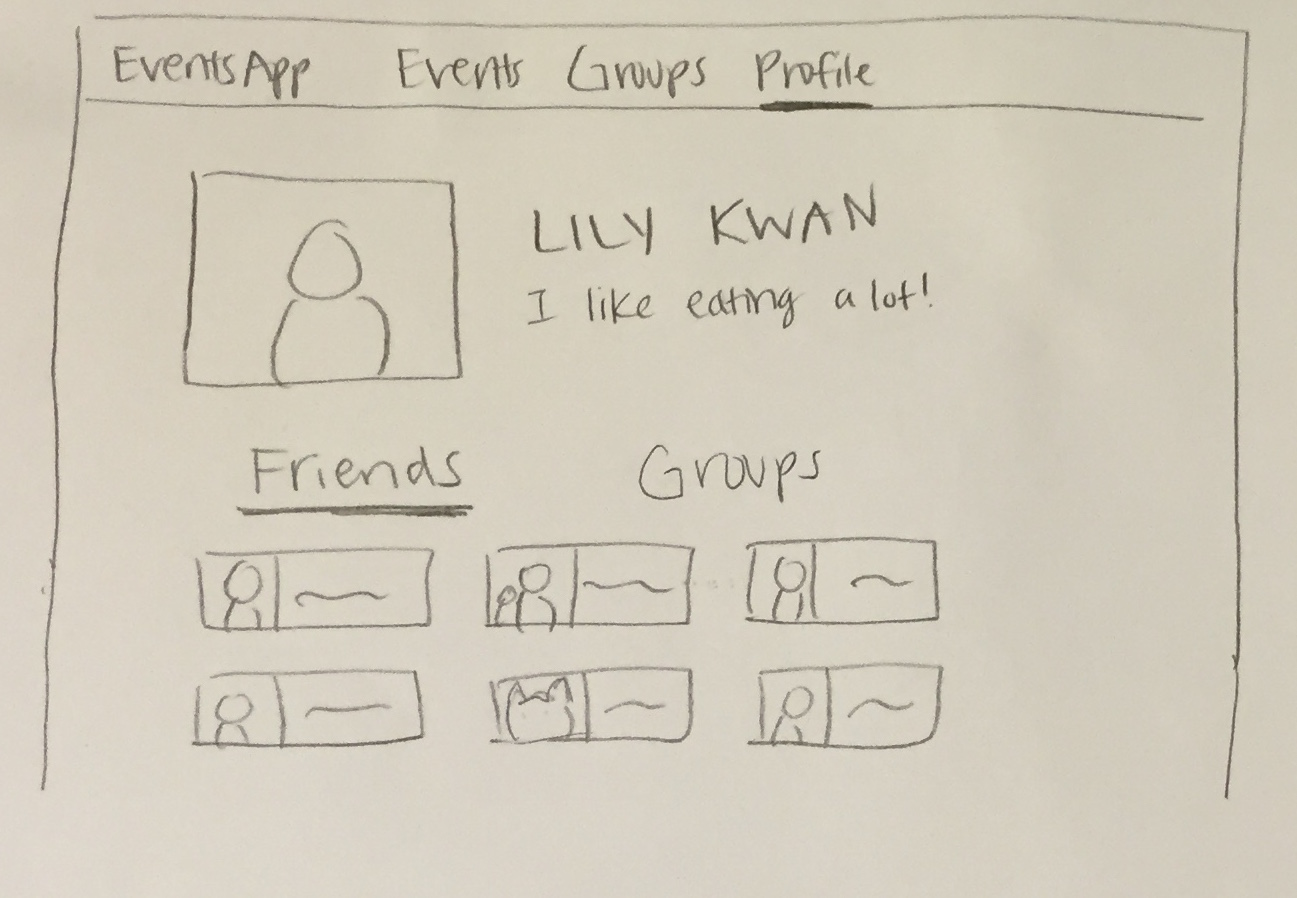 EventsApp Events Groups Profile
LILY KWAN
I like eating a lot!
Friends Groups